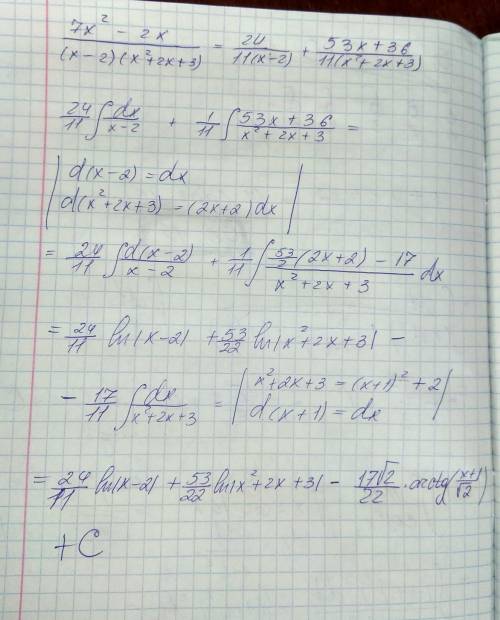 (7x² - 2x)/((x-2)(x²+2x+3)) = 24/(11(x-2)) + (53x+36)/(11(x²+2x+3))
24/11 ∫ dx/(x-2) + 1/11 ∫ (53x+36)/(x²+2x+3) =
| d(x-2) = dx
d(x²+2x+3) = (2x+2)dx |
= 24/11 ∫ d(x-2)/(x-2) + 1/11 ∫ (53/2 (2x+2) - 17)/(x²+2x+3) dx
= 24/11 ln|x-2| + 53/22 ln|x²+2x+3| -
- 17/11 ∫ dx/(x²+2x+3) = | x²+2x+3 = (x+1)²+2
d(x+1) = dx |
= 24/11 ln|x-2| + 53/22 ln|x²+2x+3| - 17√2/22 · arctg((x+1)/√2)
+ C